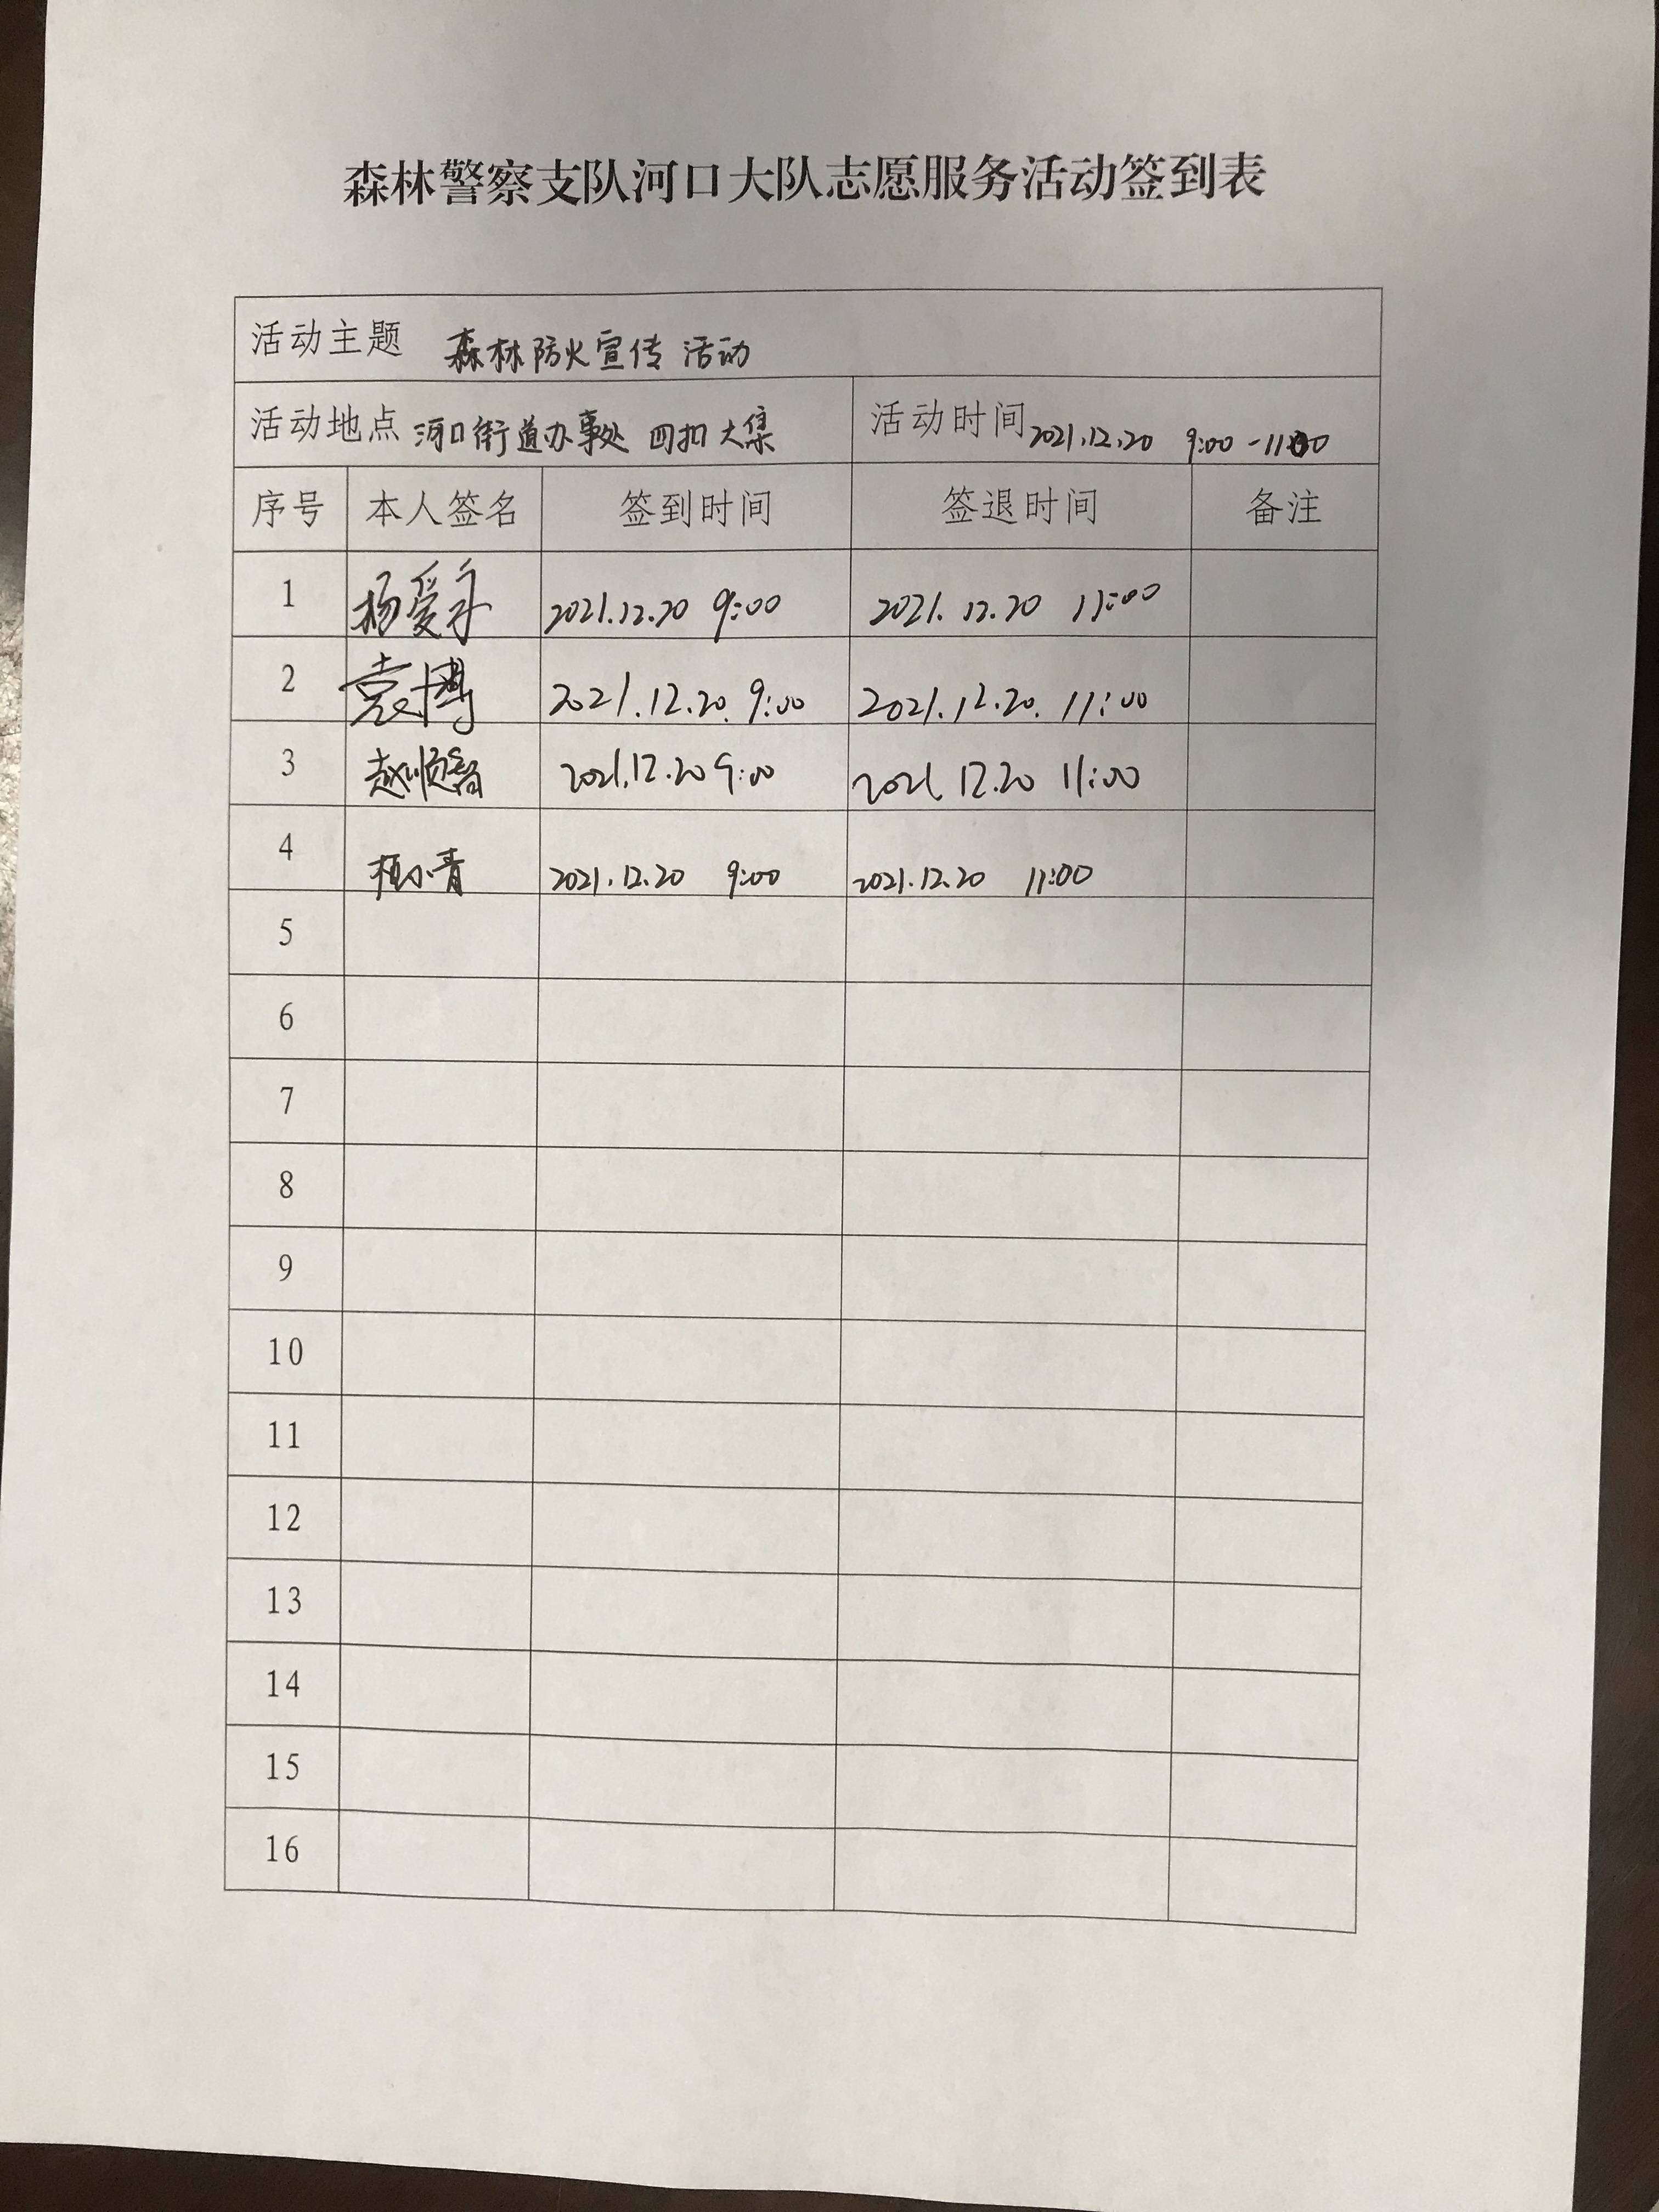 森林警察支队河口大队志愿服务活动签到表
活动主题 森林防火宣传活动
活动地点 河口街道办事处 四扣大集 活动时间 2021.12.20 9:00-11:00
序号 本人签名 签到时间 签退时间 备注
1 杨爱 2021.12.20 9:00 2021.12.20 11:00
2 袁博 2021.12.20. 9:00 2021.12.20. 11:00
3 赵顺 2021.12.20 9:00 2021.12.20 11:00
4 小青 2021.12.20 9:00 2021.12.20 11:00
5
6
7
8
9
10
11
12
13
14
15
16